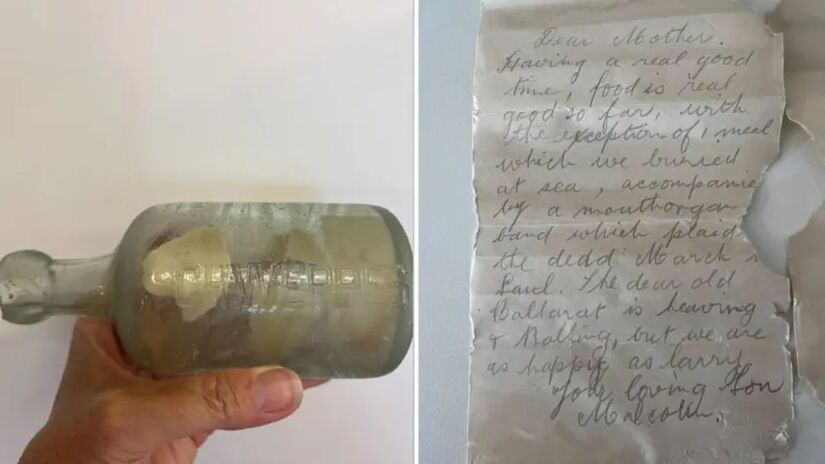 Dear Mother.
Having a real good
time, food is real
good so far, with
the exception of 1 meal
which we buried
at sea, accompanie
by a mouthorgan
band which plaid
the dead March
Saul. The dear old
Ballarat is heaving
& Rolling, but we are
as happy as larry
Your loving Son
Malcolm.